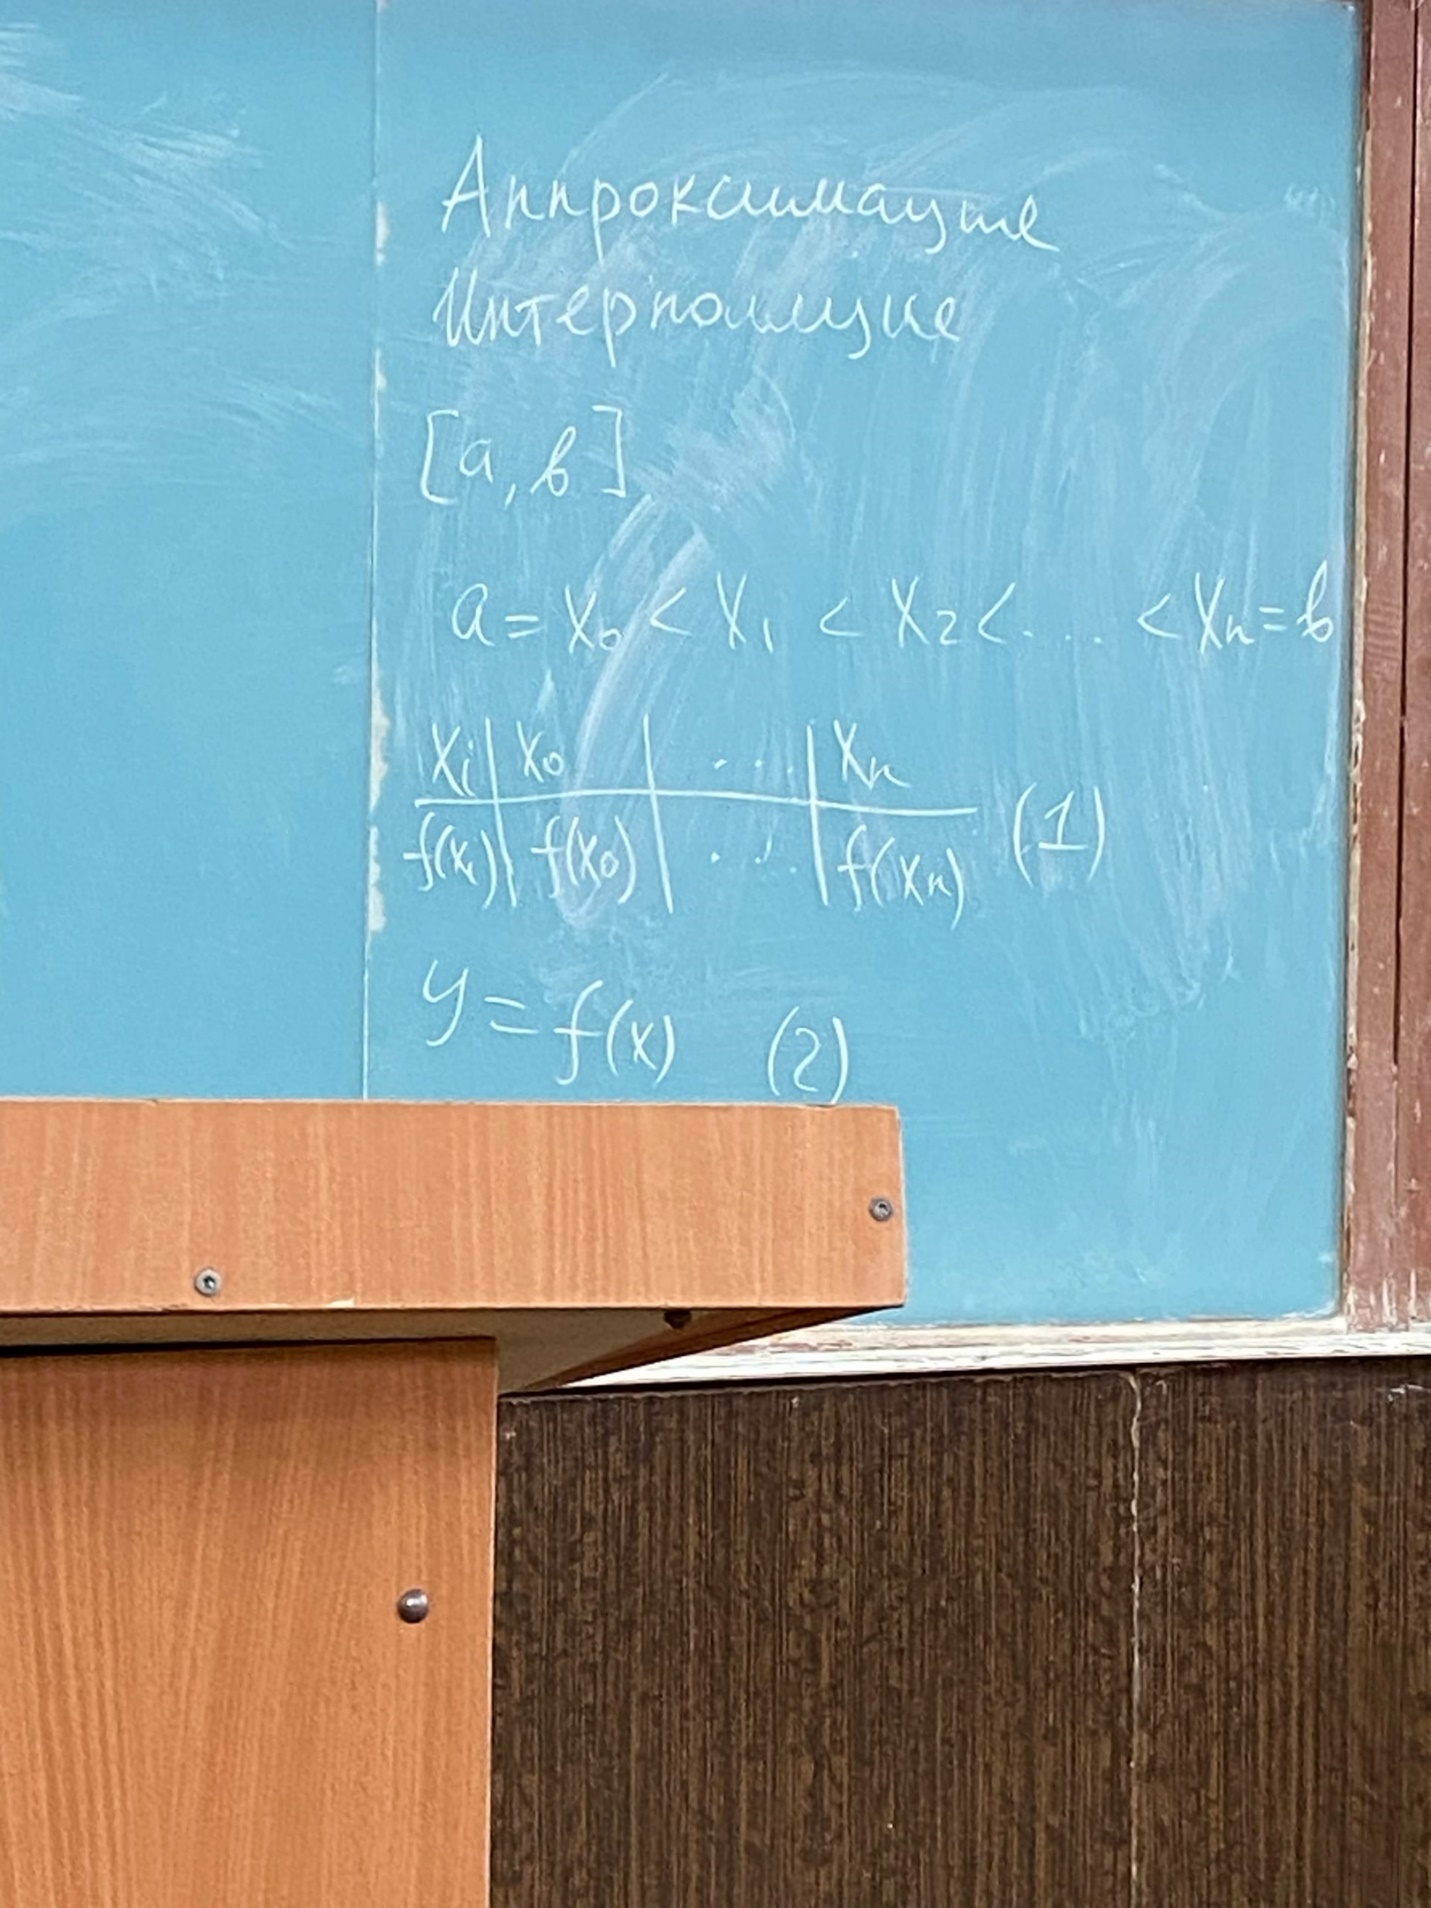 Аппроксимация
Интерполяция
[a, b]
a = x₀ < x₁ < x₂ < .... < xₙ = b
xᵢ | x₀ | .... | xₙ
f(xᵢ) | f(x₀) | .... | f(xₙ) (1)
y = f(x) (2)